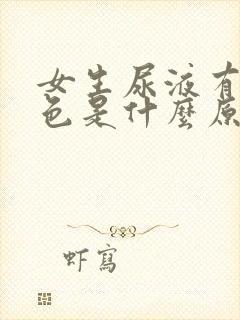 女生尿液有
色是什麼原
虾寫